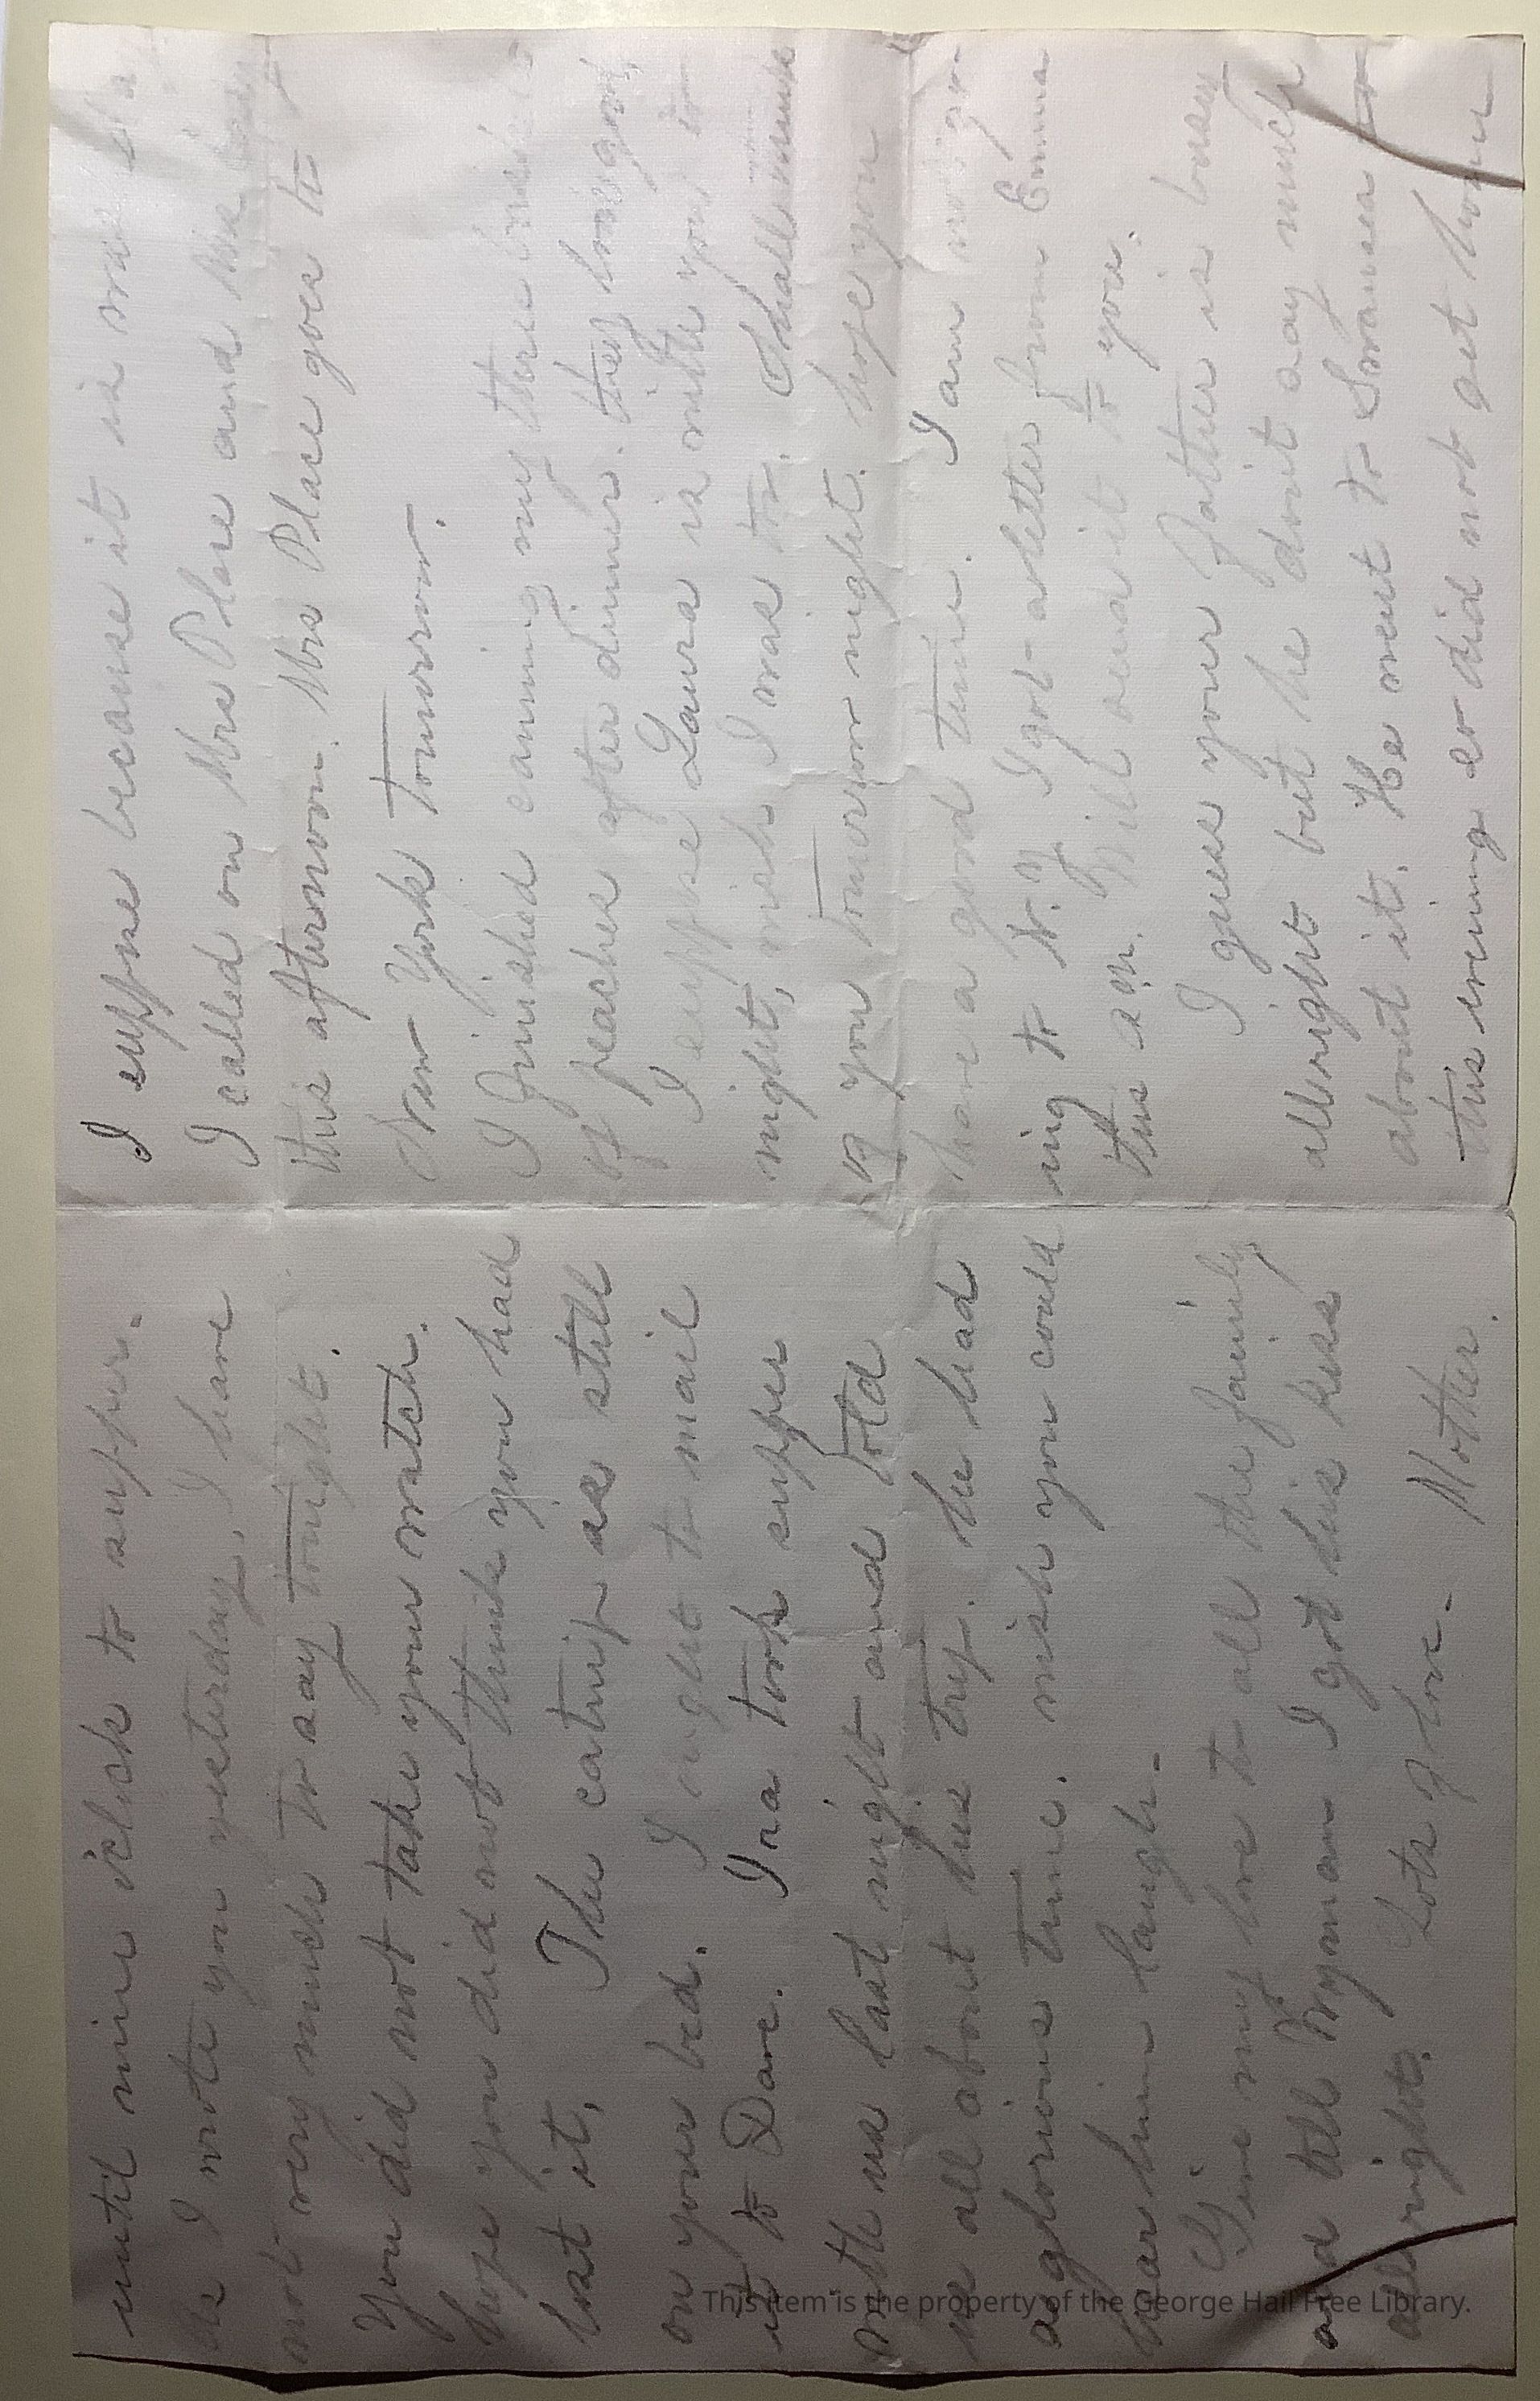 I suppose because it is
I called on Mrs Place and
this afternoon. Mrs Place goes to
New York tomorrow.
I finished canning my three
of peaches after dinner. they look good,
I suppose Laura is with you to
night, wish I was too. Shall
you tomorrow night. hope you
have a good time. I am not go
ing to N.Y. I got a letter from Emma
this a m. Will send it to you.
I guess your Father is busy
allright but he don't say much
about it. He went to Swansea
this evening so did not get home
until nine oclock to supper.
As I wrote you yesterday, I have
not very much to say tonight.
You did not take your watch.
hope you did not think you had
lost it, The catnip is still
on your bed. I ought to mail
it to Dave. Ira took supper
with us last night and told
us all about his trip. he had
a glorious time. wish you could
hear him laugh.
Give my love to all the family
and tell Wyman I got his kiss
all right. Lots of love.
Mother.
This item is the property of the George Hail Free Library.